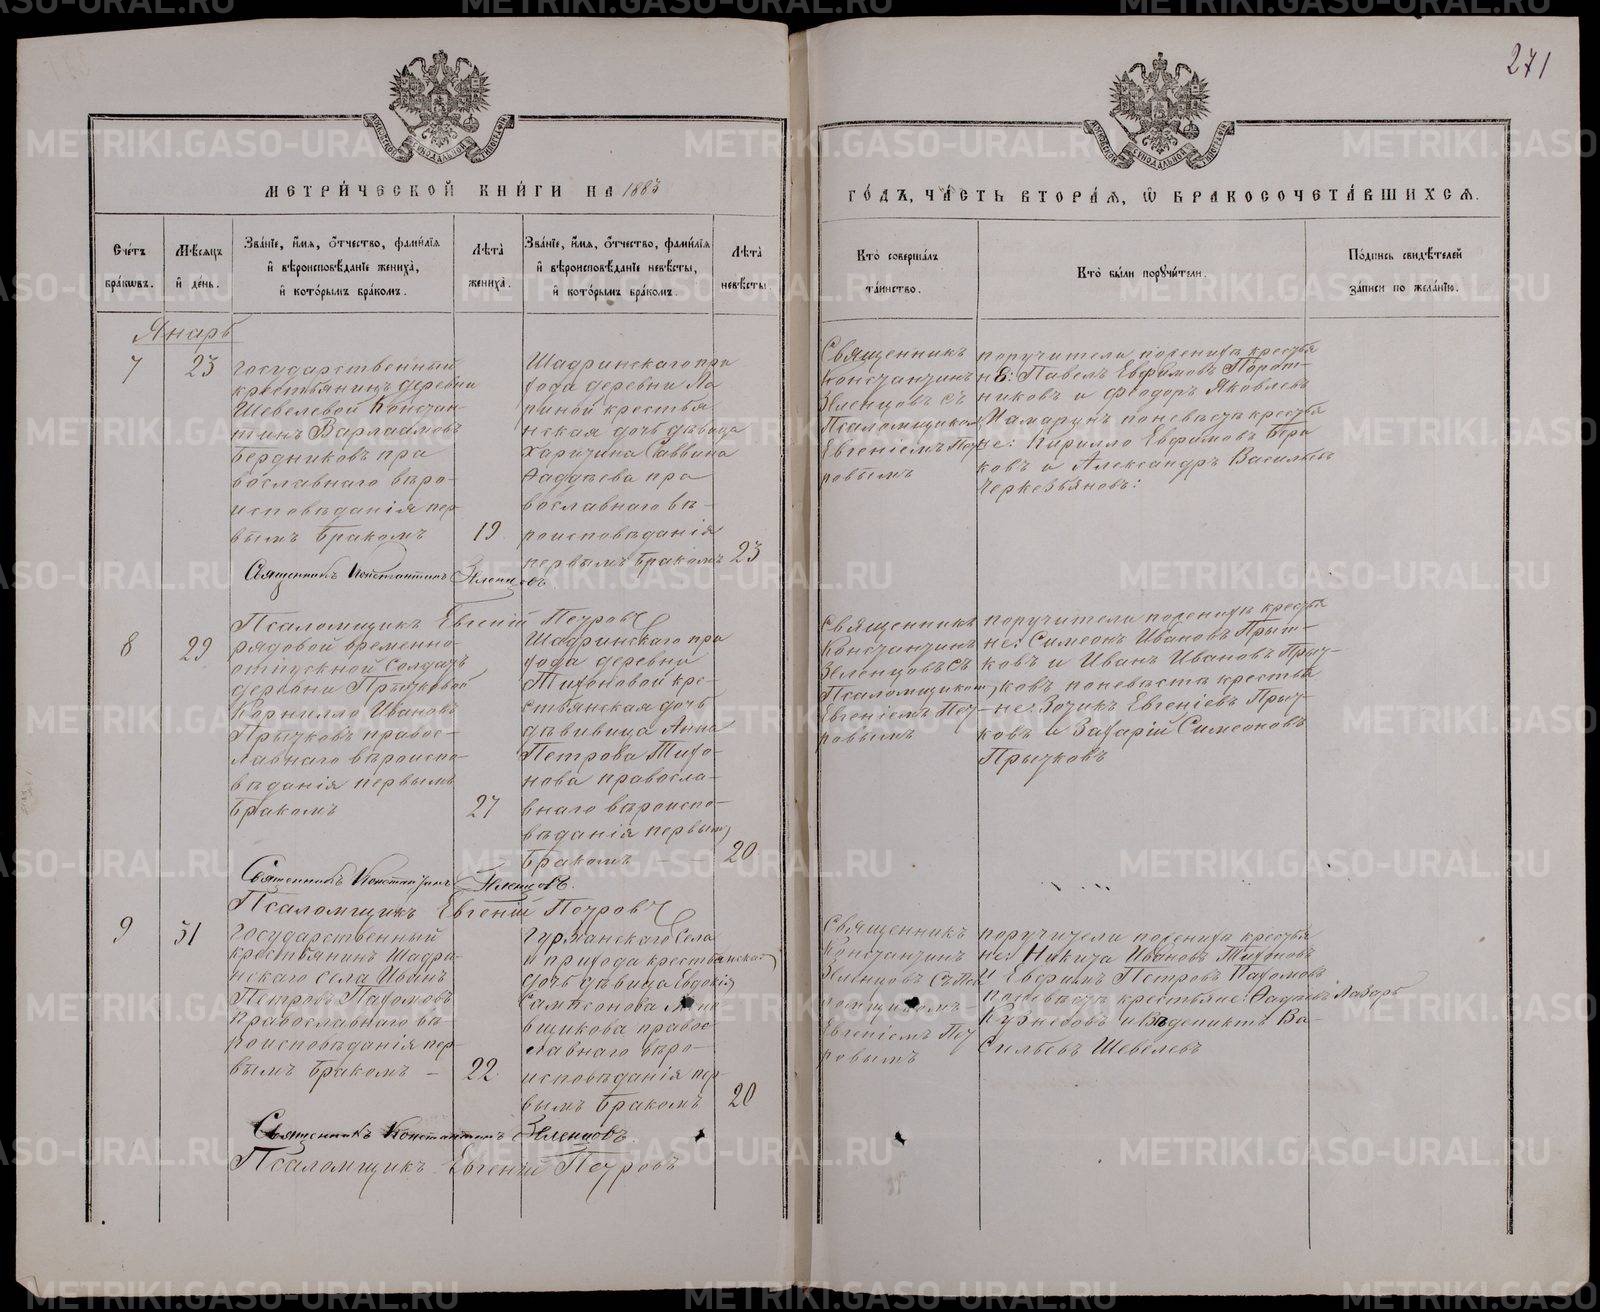 271
МОСКОВСКОЙ СѴНОДАЛЬНОЙ ТИПОГРАФІИ
МОСКОВСКОЙ СѴНОДАЛЬНОЙ ТИПОГРАФІИ
МЕТРИ́ЧЕСКОЙ КНИ́ГИ НА 1883
ГО́ДЪ, ЧА́СТЬ ВТОРА́Я, Ѡ БРАКОСОЧЕТА́ВШИХСЯ.
Сче́тъ бра́кωвъ.
Мѣ́сяцъ и҆ де́нь.
Зва́нїе, и҆́мя, ѻ҆́тчество, фами́лїя
и҆ вѣроисповѣ́данїе жениха̀,
и҆ кото́рымъ бра́комъ.
Лѣ́та̀ жениха̀.
Зва́нїе, и҆́мя, ѻ҆́тчество, фами́лїя
и҆ вѣроисповѣ́данїе невѣ́сты,
и҆ кото́рымъ бра́комъ.
Лѣ́та̀ невѣ́сты.
Кто̀ соверша́лъ
та́инство.
Кто̀ бы́ли поручи́тели.
По́дпись свидѣ́телей
за́писи по жела́нїю.
Январь
7
23
Государственный
крестьянинъ деревни
Шевелевой Констан-
тинъ Варлаамовъ
Бердниковъ пра
вославнаго вѣро-
исповѣданія пер
вымъ бракомъ
19
Шадринскаго при
хода деревни Ла
пиной крестья
нская дочь дѣвица
Харитина Саввина
Фаддѣева пра
вославнаго вѣ-
роисповѣданія
первымъ бракомъ
23
Священникъ
Константинъ
Зеленцовъ съ
Псаломщикомъ
Евгеніемъ Пет
ровымъ
поручители поженихѣ крестья
не: Павелъ Ефимовъ Порот-
никовъ и Феодоръ Яковлевъ
поневѣстѣ крестья
не: Кирилло Ефимовъ Бери
ковъ и Александръ Васильевъ
Черкезьяновъ:
Священникъ Константинъ Зеленцовъ.
Псаломщикъ Евгеній Петровъ
8
29
рядовой временно-
отпускной Солдатъ
деревни Прытковой
Корнилло Ивановъ
Прытковъ правос-
лавнаго вѣроиспо-
вѣданія первымъ
бракомъ
27
Шадринскаго при
хода деревни
Тихоновой кре-
стьянская дочь
дѣвивица Анна
Петрова Тихо-
нова правосла-
внаго вѣроиспо-
вѣданія первым
бракомъ
20
Священникъ
Константинъ
Зеленцовъ съ
Псаломщиком
Евгеніемъ Пет
ровымъ
поручители поженихѣ крестья
не: Симеонъ Ивановъ Прыт-
ковъ и Иванъ Ивановъ Прыт-
ковъ поневѣстѣ крестья
не: Зотикъ Евгеніевъ Прыт
ковъ и Захарій Симеоновъ
Прытковъ
Священникъ Константинъ Зеленцовъ.
Псаломщикъ Евгеній Петровъ
9
31
Государственный
крестьянинъ Шадри-
нскаго села Иванъ
Петровъ Пахомовъ
православнаго вѣ
роисповѣданія пер-
вымъ бракомъ
22
села
и прихода крестьянская
дочь дѣвица Евдокія
Сампсонова
правос
лавнаго вѣро-
исповѣданія пер
вымъ бракомъ
20
Священникъ
Константинъ
Зеленцовъ съ Пса
ломщикомъ
Евгеніемъ Пет
ровымъ
поручители поженихѣ крестья
не: Никита Ивановъ Тихоновъ
и Евфимъ Петровъ Пахомовъ
поневѣстѣ крестьяне: Фадѣй Лазаре
и Венедиктъ Ва-
сильевъ Шевелевъ
Священникъ Константинъ Зеленцовъ.
Псаломщикъ Евгеній Петровъ
METRIKI.GASO-URAL.RU